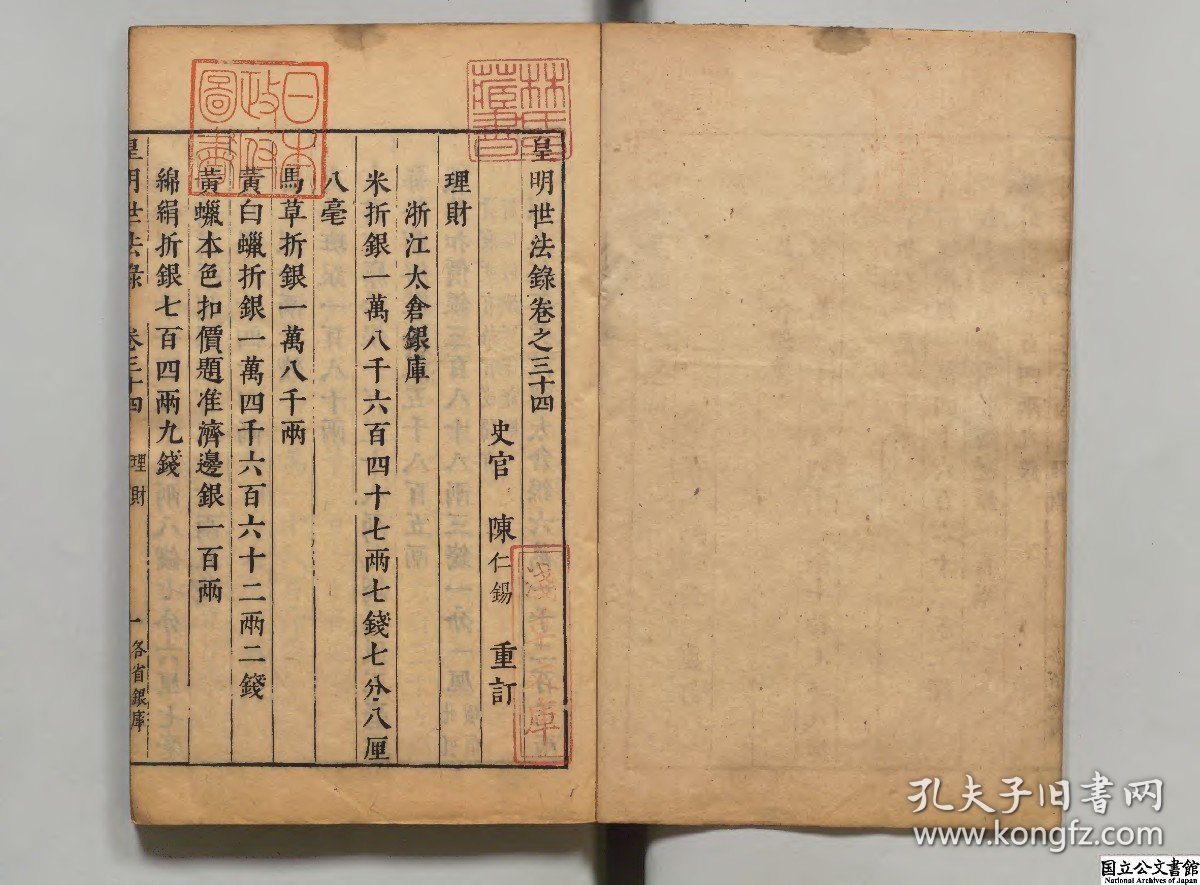 皇明世法錄卷之三十四
史官 陳仁錫 重訂
理財
浙江太倉銀庫
米折銀一萬八千六百四十七兩七錢七分八厘
八毫
馬草折銀一萬八千兩
黃白蠟折銀一萬四千六百六十二兩二錢
黃蠟本色扣價題准濟邊銀一百兩
綿絹折銀七百四兩九錢
皇明世法錄 卷三十四 理財 一 各省銀庫
林氏藏書
日本政府圖書
淺草文庫
孔夫子旧书网
www.kongfz.com
国立公文書館
National Archives of Japan